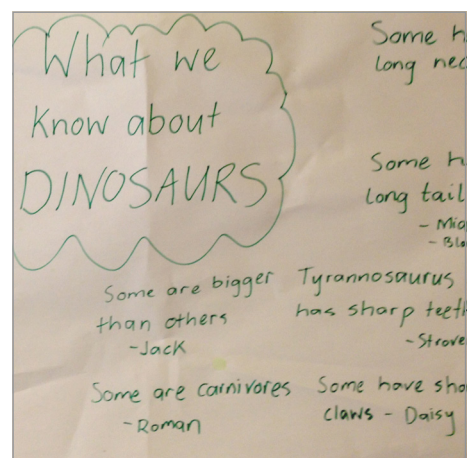 What we
Know about
DINOSAURS
Some h
long nec
Some h
long tail
- Mia
- Blo
Some are bigger
than others
-Jack
Tyrannosaurus
has sharp teeth
Some are carnivores
-Roman
Some have sha
claws - Daisy